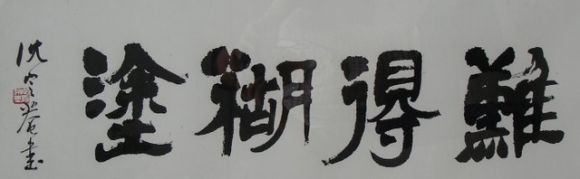 難得糊塗
沈定庵書